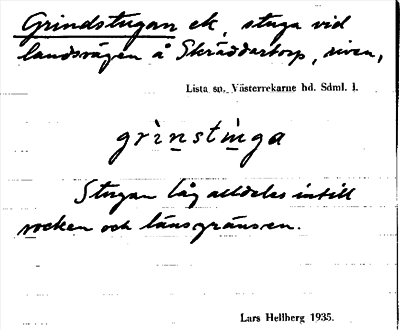 Grindstugan ek, stuga vid
landsvägen å Skräddartorp, riven,
Lista sn. Västerrekarne hd. Sdml. l.
grìnstu̇ga
Stugan låg alldeles intill
socken och länsgränsen.
Lars Hellberg 1935.